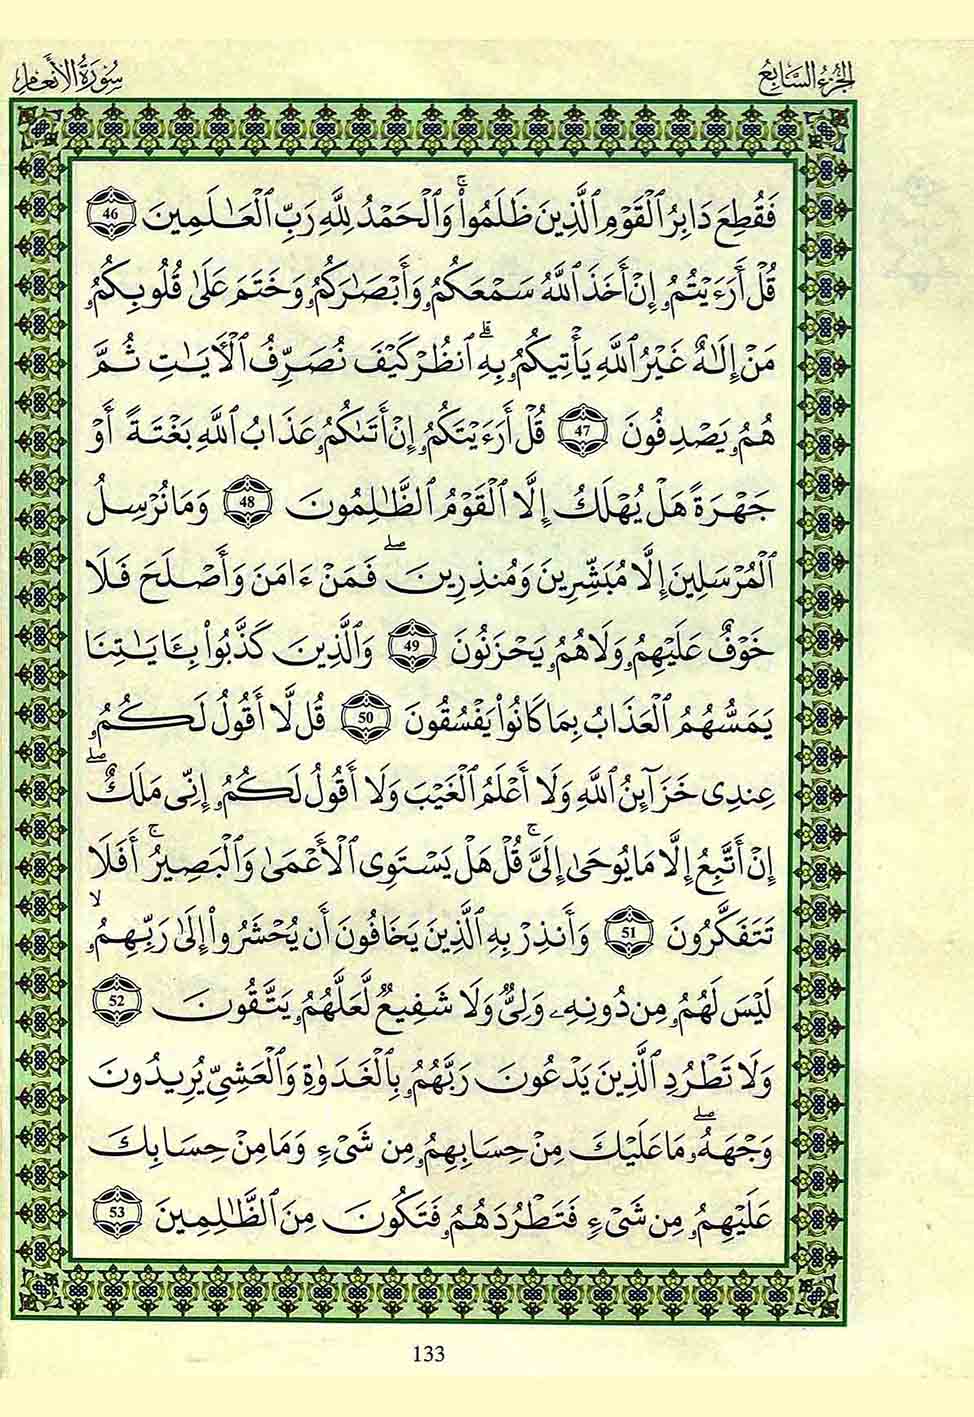 الجزء السابع
سورة الأنعام
فَقُطِعَ دَابِرُ ٱلْقَوْمِ ٱلَّذِينَ ظَلَمُوا۟ ۚ وَٱلْحَمْدُ لِلَّهِ رَبِّ ٱلْعَـٰلَمِينَ 46
قُلْ أَرَءَيْتُمُۥ إِنْ أَخَذَ ٱللَّهُ سَمْعَكُمُۥ وَأَبْصَـٰرَكُمُۥ وَخَتَمَ عَلَىٰ قُلُوبِكُمُۥ
مَنْ إِلَـٰهٌ غَيْرُ ٱللَّهِ يَأْتِيكُمُۥ بِهِ ۗ ٱنظُرْ كَيْفَ نُصَرِّفُ ٱلْأَيَـٰتِ ثُمَّ
هُمُۥ يَصْدِفُونَ 47 قُلْ أَرَءَيْتَكُمُۥ إِنْ أَتَىٰكُمُۥ عَذَابُ ٱللَّهِ بَغْتَةً أَوْ
جَهْرَةً هَلْ يُهْلَكُ إِلَّا ٱلْقَوْمُ ٱلظَّـٰلِمُونَ 48 وَمَا نُرْسِلُ
ٱلْمُرْسَلِينَ إِلَّا مُبَشِّرِينَ وَمُنذِرِينَ ۖ فَمَنْ ءَامَنَ وَأَصْلَحَ فَلَا
خَوْفٌ عَلَيْهِمُۥ وَلَا هُمُۥ يَحْزَنُونَ 49 وَٱلَّذِينَ كَذَّبُوا۟ بِـَٔايَـٰتِنَا
يَمَسُّهُمُ ٱلْعَذَابُ بِمَا كَانُوا۟ يَفْسُقُونَ 50 قُل لَّا أَقُولُ لَكُمُۥ
عِندِى خَزَآئِنُ ٱللَّهِ وَلَا أَعْلَمُ ٱلْغَيْبَ وَلَا أَقُولُ لَكُمُۥ إِنِّى مَلَكٌ ۖ
إِنْ أَتَّبِعُ إِلَّا مَا يُوحَىٰ إِلَىَّ ۚ قُلْ هَلْ يَسْتَوِى ٱلْأَعْمَىٰ وَٱلْبَصِيرُ ۚ أَفَلَا
تَتَفَكَّرُونَ 51 وَأَنذِرْ بِهِ ٱلَّذِينَ يَخَافُونَ أَن يُحْشَرُوا۟ إِلَىٰ رَبِّهِمُۥ ۙ
لَيْسَ لَهُمُۥ مِن دُونِهِۦ وَلِىٌّ وَلَا شَفِيعٌ لَّعَلَّهُمُۥ يَتَّقُونَ 52
وَلَا تَطْرُدِ ٱلَّذِينَ يَدْعُونَ رَبَّهُمُۥ بِٱلْغَدَوٰةِ وَٱلْعَشِىِّ يُرِيدُونَ
وَجْهَهُۥ ۖ مَا عَلَيْكَ مِنْ حِسَابِهِمُۥ مِن شَىْءٍ وَمَا مِنْ حِسَابِكَ
عَلَيْهِمُۥ مِن شَىْءٍ فَتَطْرُدَهُمُۥ فَتَكُونَ مِنَ ٱلظَّـٰلِمِينَ 53
133